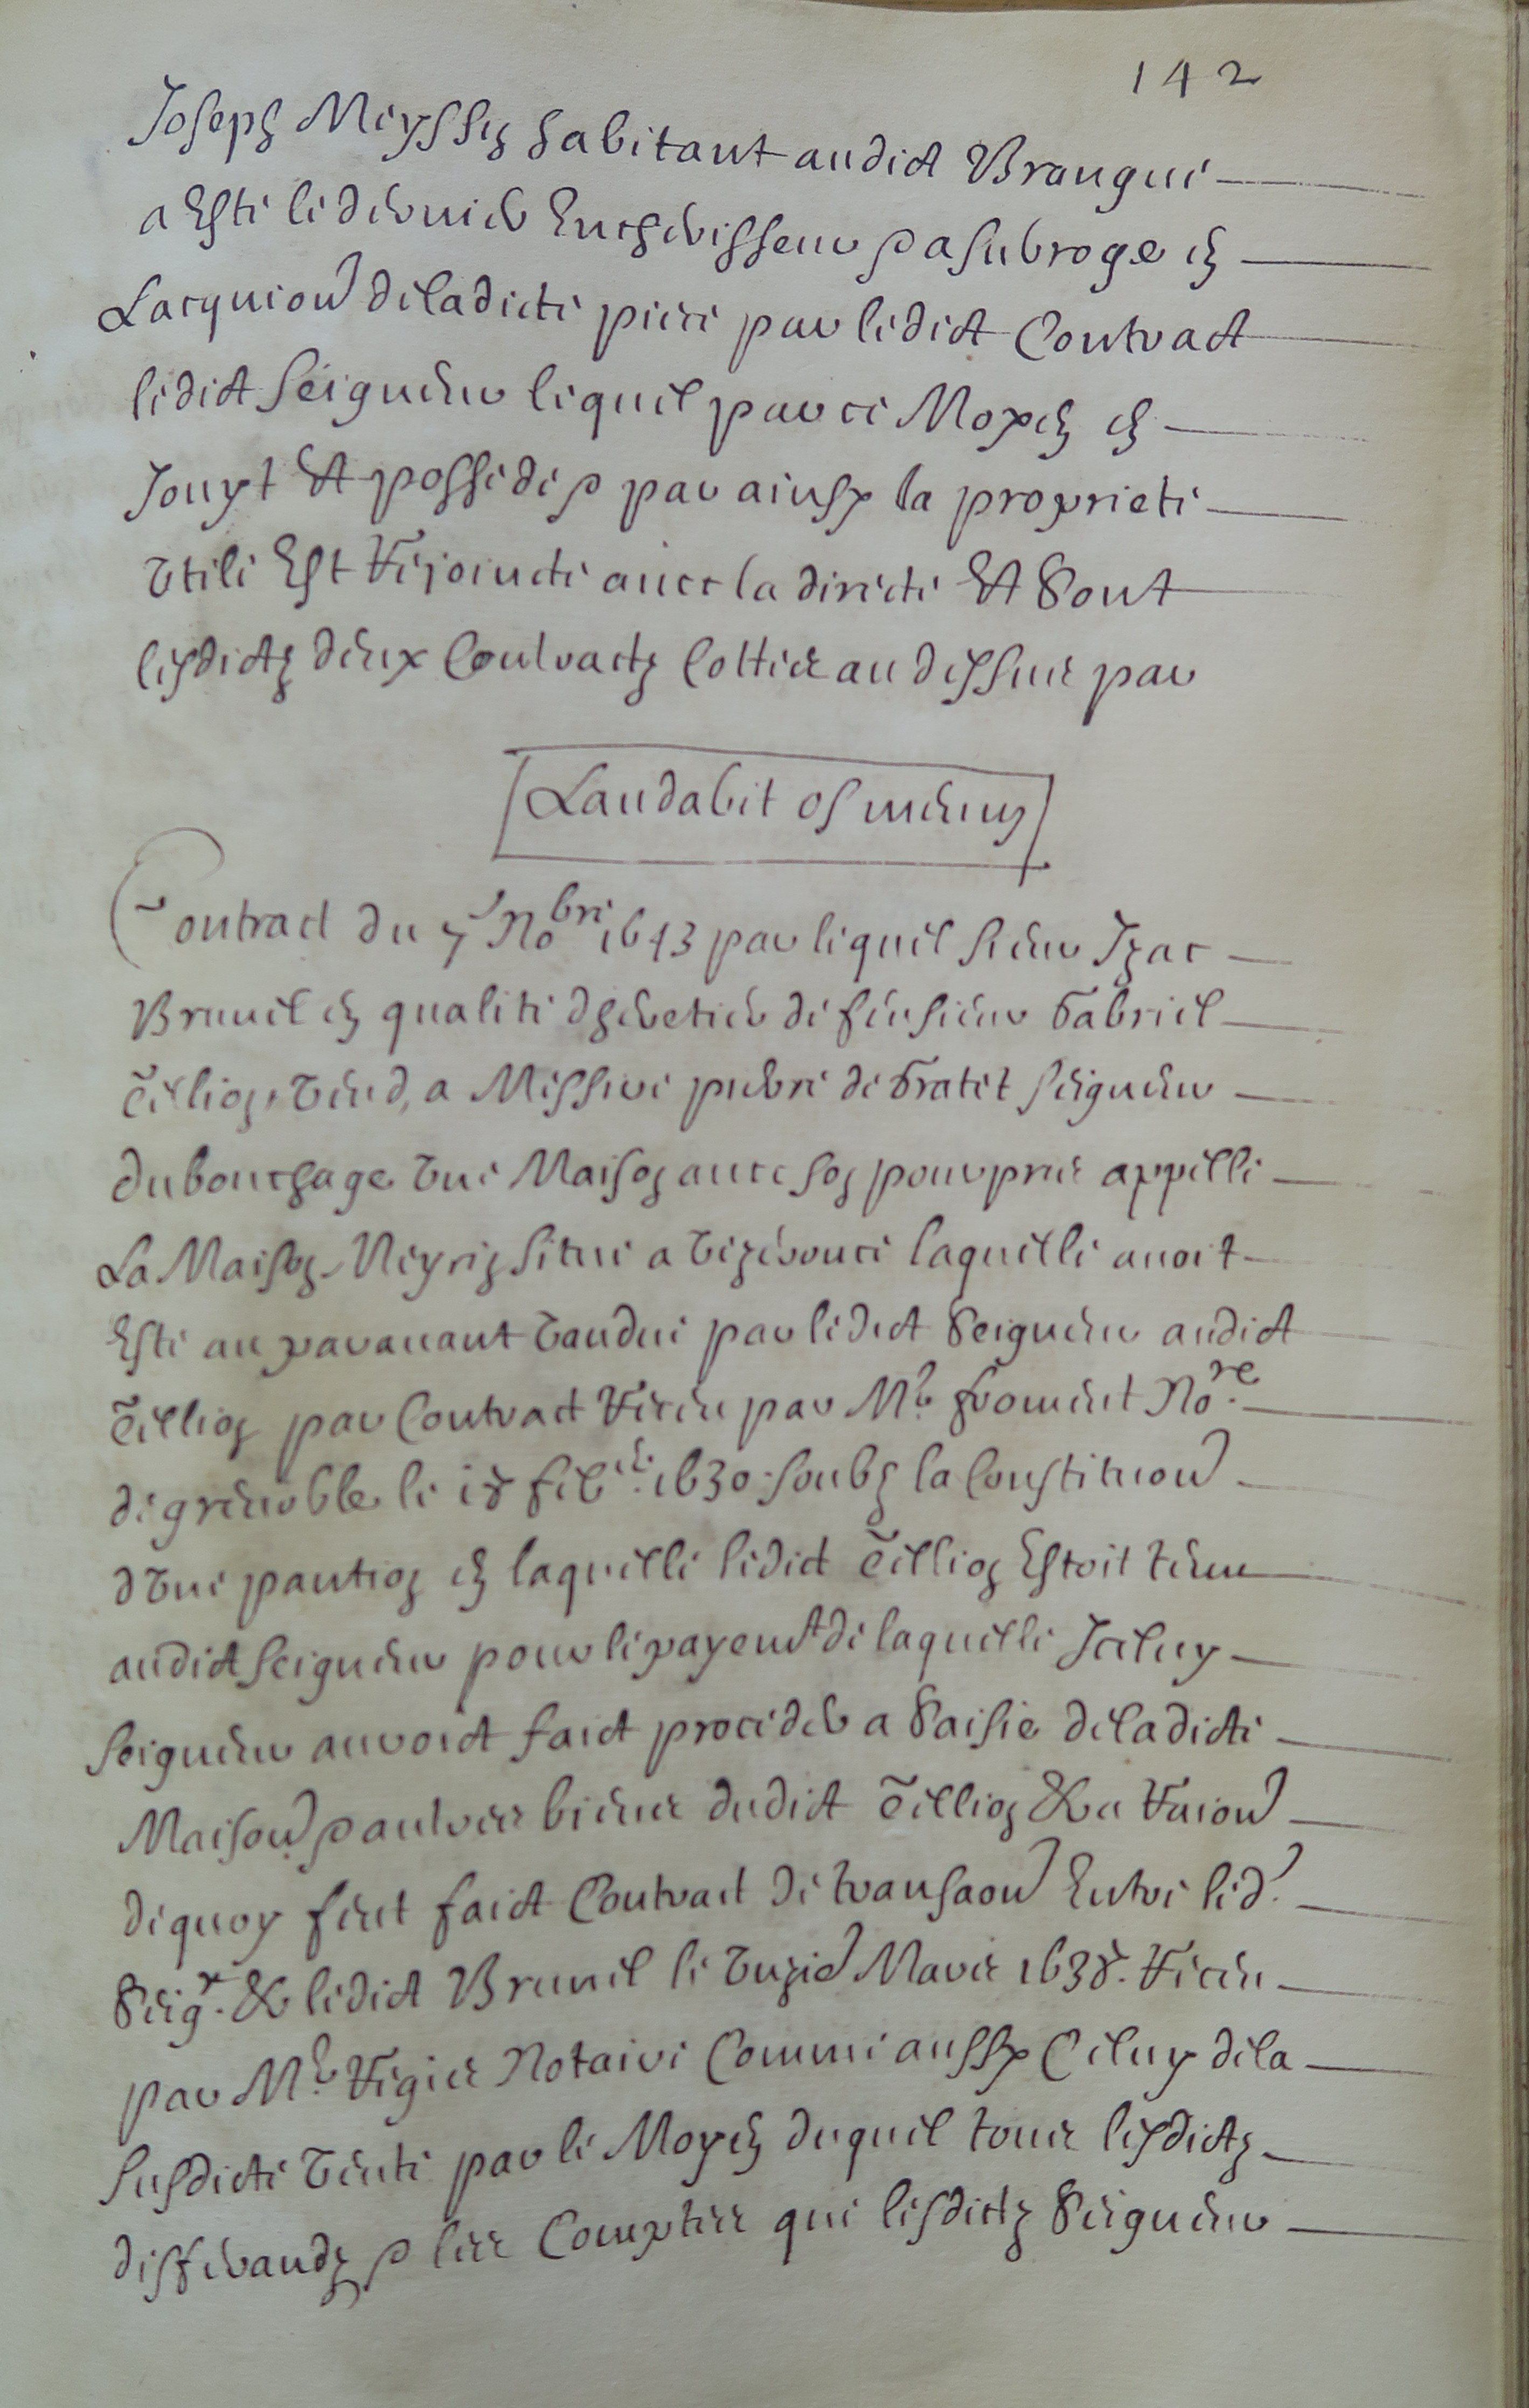 142
Joseph Meyssin habitant audict Brangue
a Esté le dernier Encherisseur & a subroge en
Lacquion de ladicte piece par ledict Contract
ledict Seigneur lequel par ce Moyen en
Jouyt Et possede & par ainsy la proprieté
Utile Est Rejoincte avec la directe Et Sont
lesdictz deux Contractz Cottes au dessus par
Laudabit os meum
Contract du 7e Nobre 1643 par lequel sieur Izac
Brunel en qualité dheretier de feu sieur Gabriel
Tellion, Vend, a Messire pierre de Gratet Seigneur
du bouchage Une Maison avec son pourpris appellé
La Maison Neyrin située a Vezeronce laquelle avoit
Esté au paravant Vandue par ledict Seigneur audict
Tellion par Contract Receu par Mr froment Nore
de grenoble le 18 feb 1630 soubz la Constituon
dUne pantion en laquelle ledict Tellion Estoit tenu
audict Seigneur pour le payemt de laquelle Iceluy
Seigneur auvoict faict proceder a Saisie de ladicte
Maison & autres biens dudict Tellion & a Raion
de quoy feut faict Contract de transaon Entre led.
Seigr. & ledict Brunel le Unzie Mars 1638. Receu
par Mr Regis Notaire Comme aussy Celuy de la
susdicte Vente par le Moyen duquel tous lesdictz
differandz & les Comptes que lesdictz Seigneur